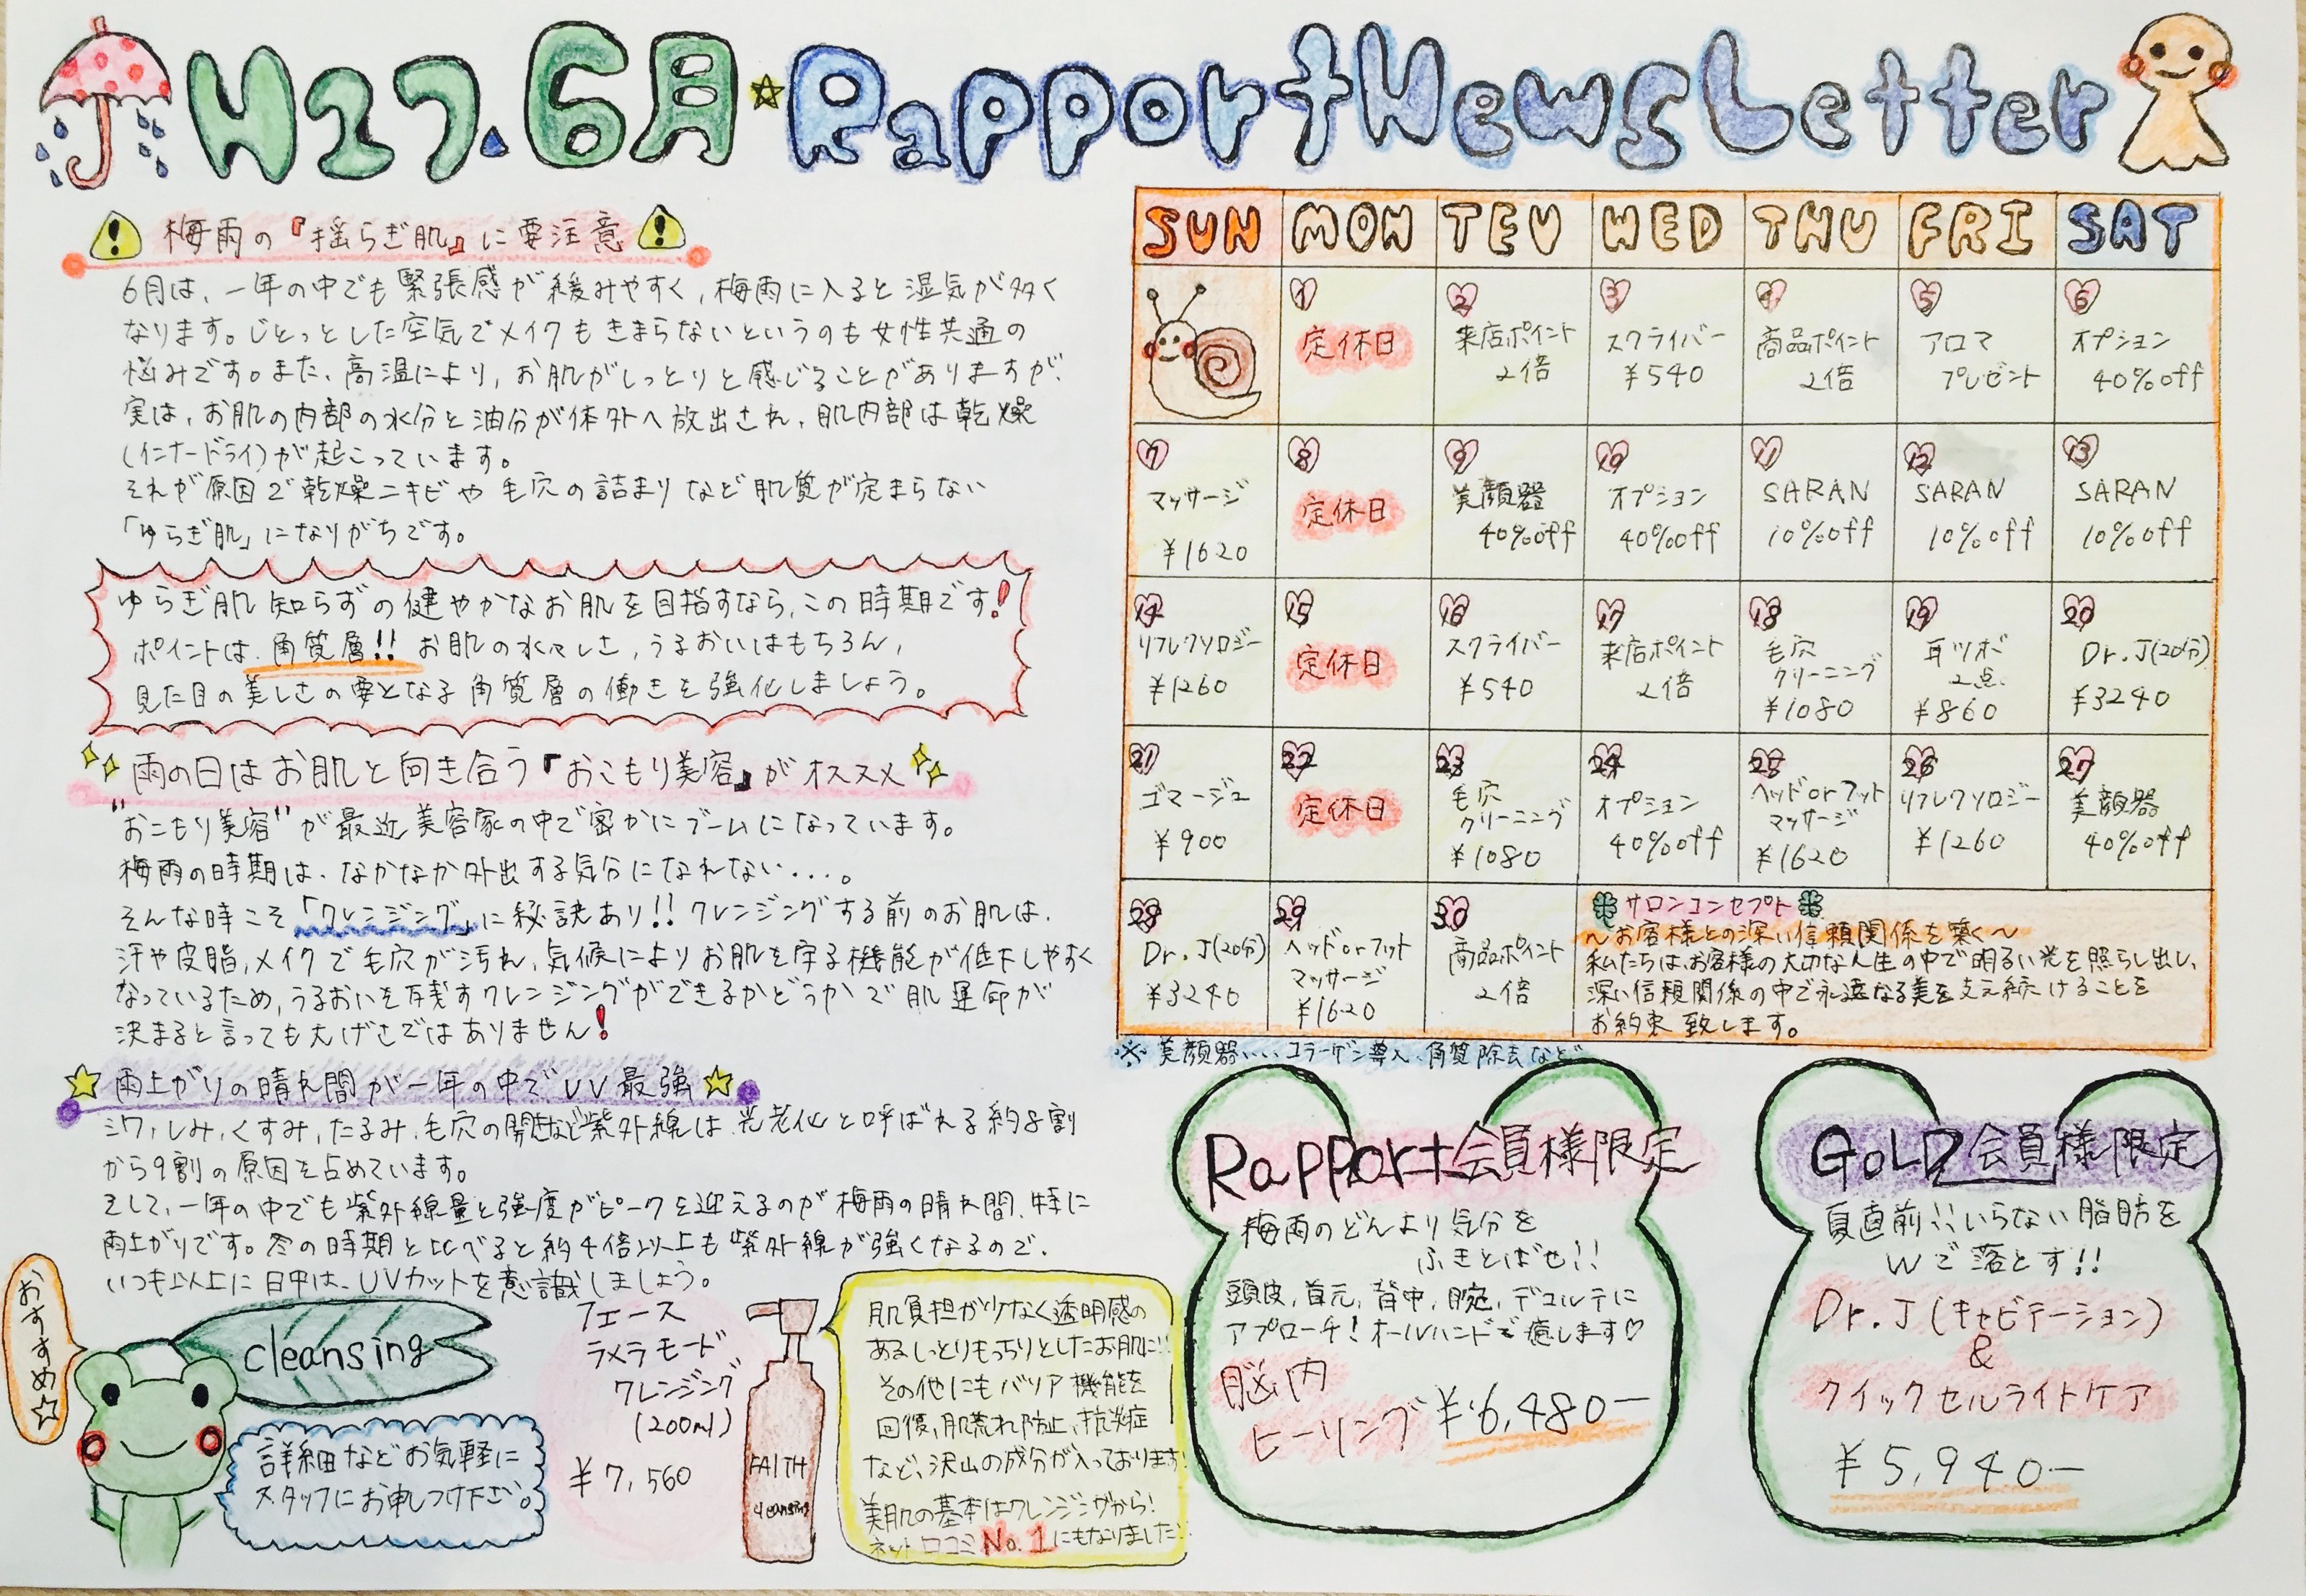 H27.6月☆Rapport News Letter
梅雨の『揺らぎ肌』に要注意
6月は、一年の中でも緊張感が緩みやすく、梅雨に入ると湿気が多く
なります。じとっとした空気でメイクもきまらないというのも女性共通の
悩みです。また、高温により、お肌がしっとりと感じることがありますが、
実は、お肌の内部の水分と油分が体外へ放出され、肌内部は乾燥
(インナードライ)が起こっています。
それが原因で乾燥ニキビや毛穴の詰まりなど肌質が定まらない
「ゆらぎ肌」になりがちです。
ゆらぎ肌知らずの健やかなお肌を目指すなら、この時期です!
ポイントは、角質層!! お肌の水々しさ、うるおいはもちろん、
見た目の美しさの要となる角質層の働きを強化しましょう。
雨の日はお肌と向き合う『おこもり美容』がオススメ
"おこもり美容"が最近美容家の中で密かにブームになっています。
梅雨の時期は、なかなか外出する気分になれない...。
そんな時こそ「クレンジング」に秘訣あり!! クレンジングする前のお肌は、
汗や皮脂、メイクで毛穴が汚れ、気候によりお肌を守る機能が低下しやすく
なっているため、うるおいを残すクレンジングができるかどうかで肌運命が
決まると言っても大げさではありません!
☆雨上がりの晴れ間が一年の中でUV最強☆
シワ、しみ、くすみ、たるみ、毛穴の開きなど紫外線は、光老化と呼ばれる約8割
から9割の原因を占めています。
そして、一年の中でも紫外線量と強度がピークを迎えるのが梅雨の晴れ間、特に
雨上がりです。冬の時期と比べると約4倍以上も紫外線が強くなるので、
いつも以上に日中は、UVカットを意識しましょう。
おすすめ☆
cleansing
詳細などお気軽に
スタッフにお申しつけ下さい。
フェース
ラメラモード
クレンジング
(200ml)
¥7,560
FAITH
cleansing
肌負担が少なく透明感の
あるしっとりもっちりとしたお肌に!!
その他にもバリア機能を
回復、肌荒れ防止、抗炎症
など、沢山の成分が入っております!
美肌の基本はクレンジングから!
ネット口コミNo.1にもなりました!!
SUN MON TEU WED THU FRI SAT
1 定休日
2 来店ポイント
2倍
3 スクライバー
¥540
4 商品ポイント
2倍
5 アロマ
プレゼント
6 オプション
40%off
7 マッサージ
¥1620
8 定休日
9 美顔器
40%off
10 オプション
40%off
11 SARAN
10%off
12 SARAN
10%off
13 SARAN
10%off
14 リフレクソロジー
¥1260
15 定休日
16 スクライバー
¥540
17 来店ポイント
2倍
18 毛穴
クリーニング
¥1080
19 耳ツボ
2点
¥860
20 Dr.J(20分)
¥3240
21 ゴマージュ
¥900
22 定休日
23 毛穴
クリーニング
¥1080
24 オプション
40%off
25 ヘッドorフット
マッサージ
¥1620
26 リフレクソロジー
¥1260
27 美顔器
40%off
28 Dr.J(20分)
¥3240
29 ヘッドorフット
マッサージ
¥1620
30 商品ポイント
2倍
サロンコンセプト
～お客様との深い信頼関係を築く～
私たちは、お客様の大切な人生の中で明るい光を照らし出し、
深い信頼関係の中で永遠なる美を支え続けることを
お約束致します。
※美顔器…コラーゲン導入、角質除去など
Rapport会員様限定
梅雨のどんより気分を
ふきとばせ!!
頭皮、首元、背中、腕、デコルテに
アプローチ!オールハンドで癒します♡
脳内
ヒーリング ¥6,480ー
GOLD会員様限定
夏直前!!いらない脂肪を
Wで落とす!!
Dr.J(キャビテーション)
&
クイックセルライトケア
¥5,940ー